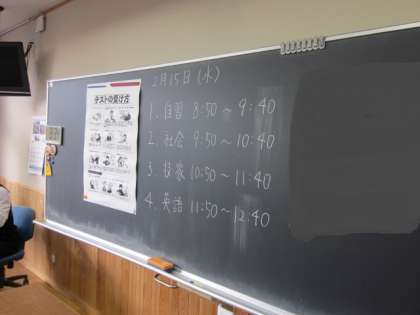 2月15日(水)
テストの受け方
1. 自習 8:50～9:40
2. 社会 9:50～10:40
3. 技家 10:50～11:40
4. 英語 11:50～12:40